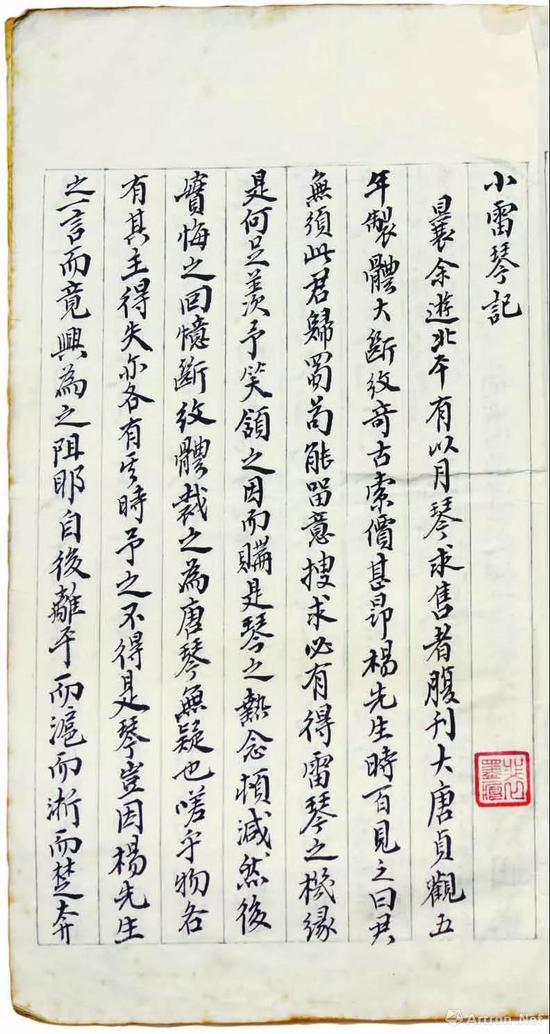 小雷琴記
曩余遊北平有以月琴求售者腹刊大唐貞觀五
年製體大斷紋奇古索價甚昂楊先生時百見之曰君
無須此君歸蜀苟能留意搜求必有得雷琴之機緣
是何足羨予笑領之因而購是琴之熱念頓減然後
實悔之回憶斷紋體裁之為唐琴無疑也嗟乎物各
有其主得失亦各有其時予之不得是琴豈因楊先生
之一言而竟興為之阻耶自後離平而滬而浙而楚奔
Artron.Net